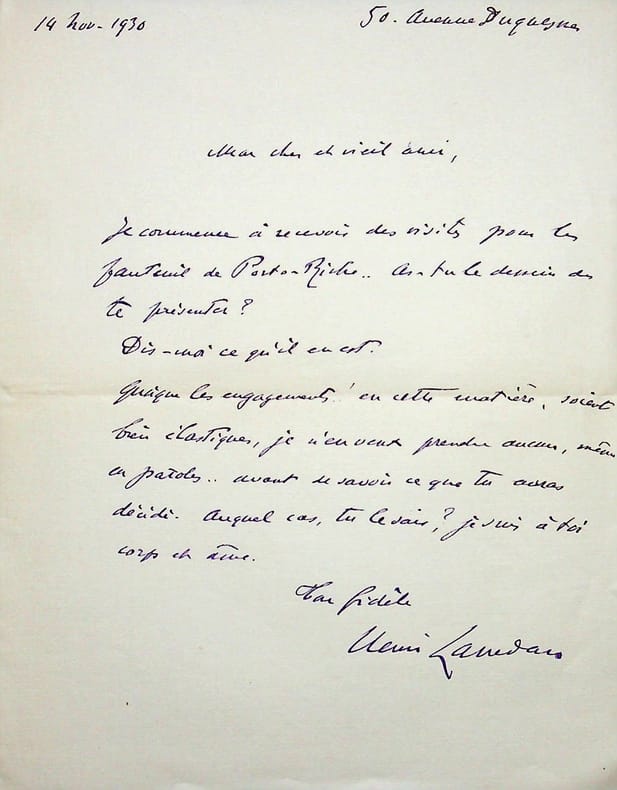 14 Nov. 1930
50. Avenue Duquesne
Mon cher et vieil ami,
Je commence à recevoir des visites pour le
fauteuil de Porto-Riche.. As-tu le dessein de
te présenter ?
Dis-moi ce qu'il en est.
Quoique les engagements ! en cette matière, soient
bien élastiques, je n'en veux prendre aucun, même
en paroles.. avant de savoir ce que tu auras
décidé. Auquel cas, tu le sais ? je suis à toi
corps et âme.
Ton fidèle
Henri Lavedan